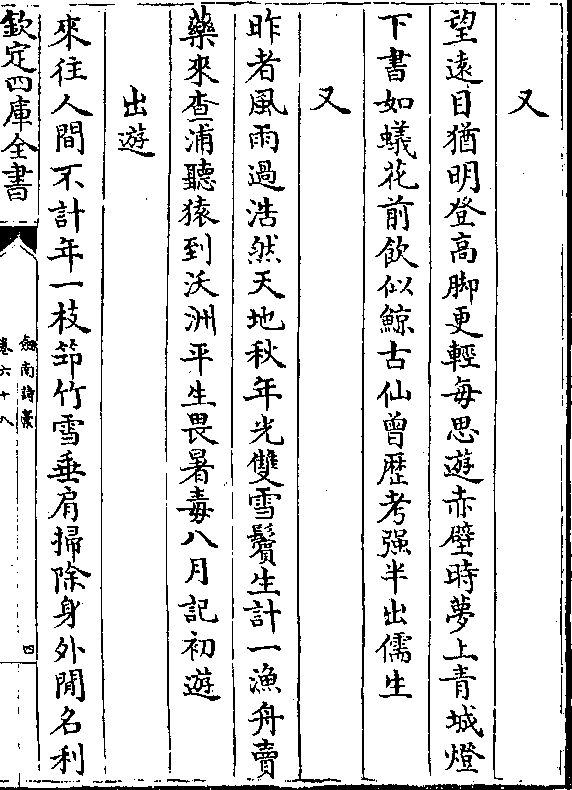 又
望遠目猶明登高脚更輕每思遊赤壁時夢上青城燈
下書如蟻花前飲似鯨古仙曾歴考强半出儒生
又
昨者風雨過浩然天地秋年光雙雪鬢生計一漁舟賣
藥來查浦聽猿到沃洲平生畏暑毒八月記初遊
出遊
來往人間不計年一枝笻竹雪垂肩掃除身外閒名利
欽定四庫全書
劍南詩槀
卷六十八
四